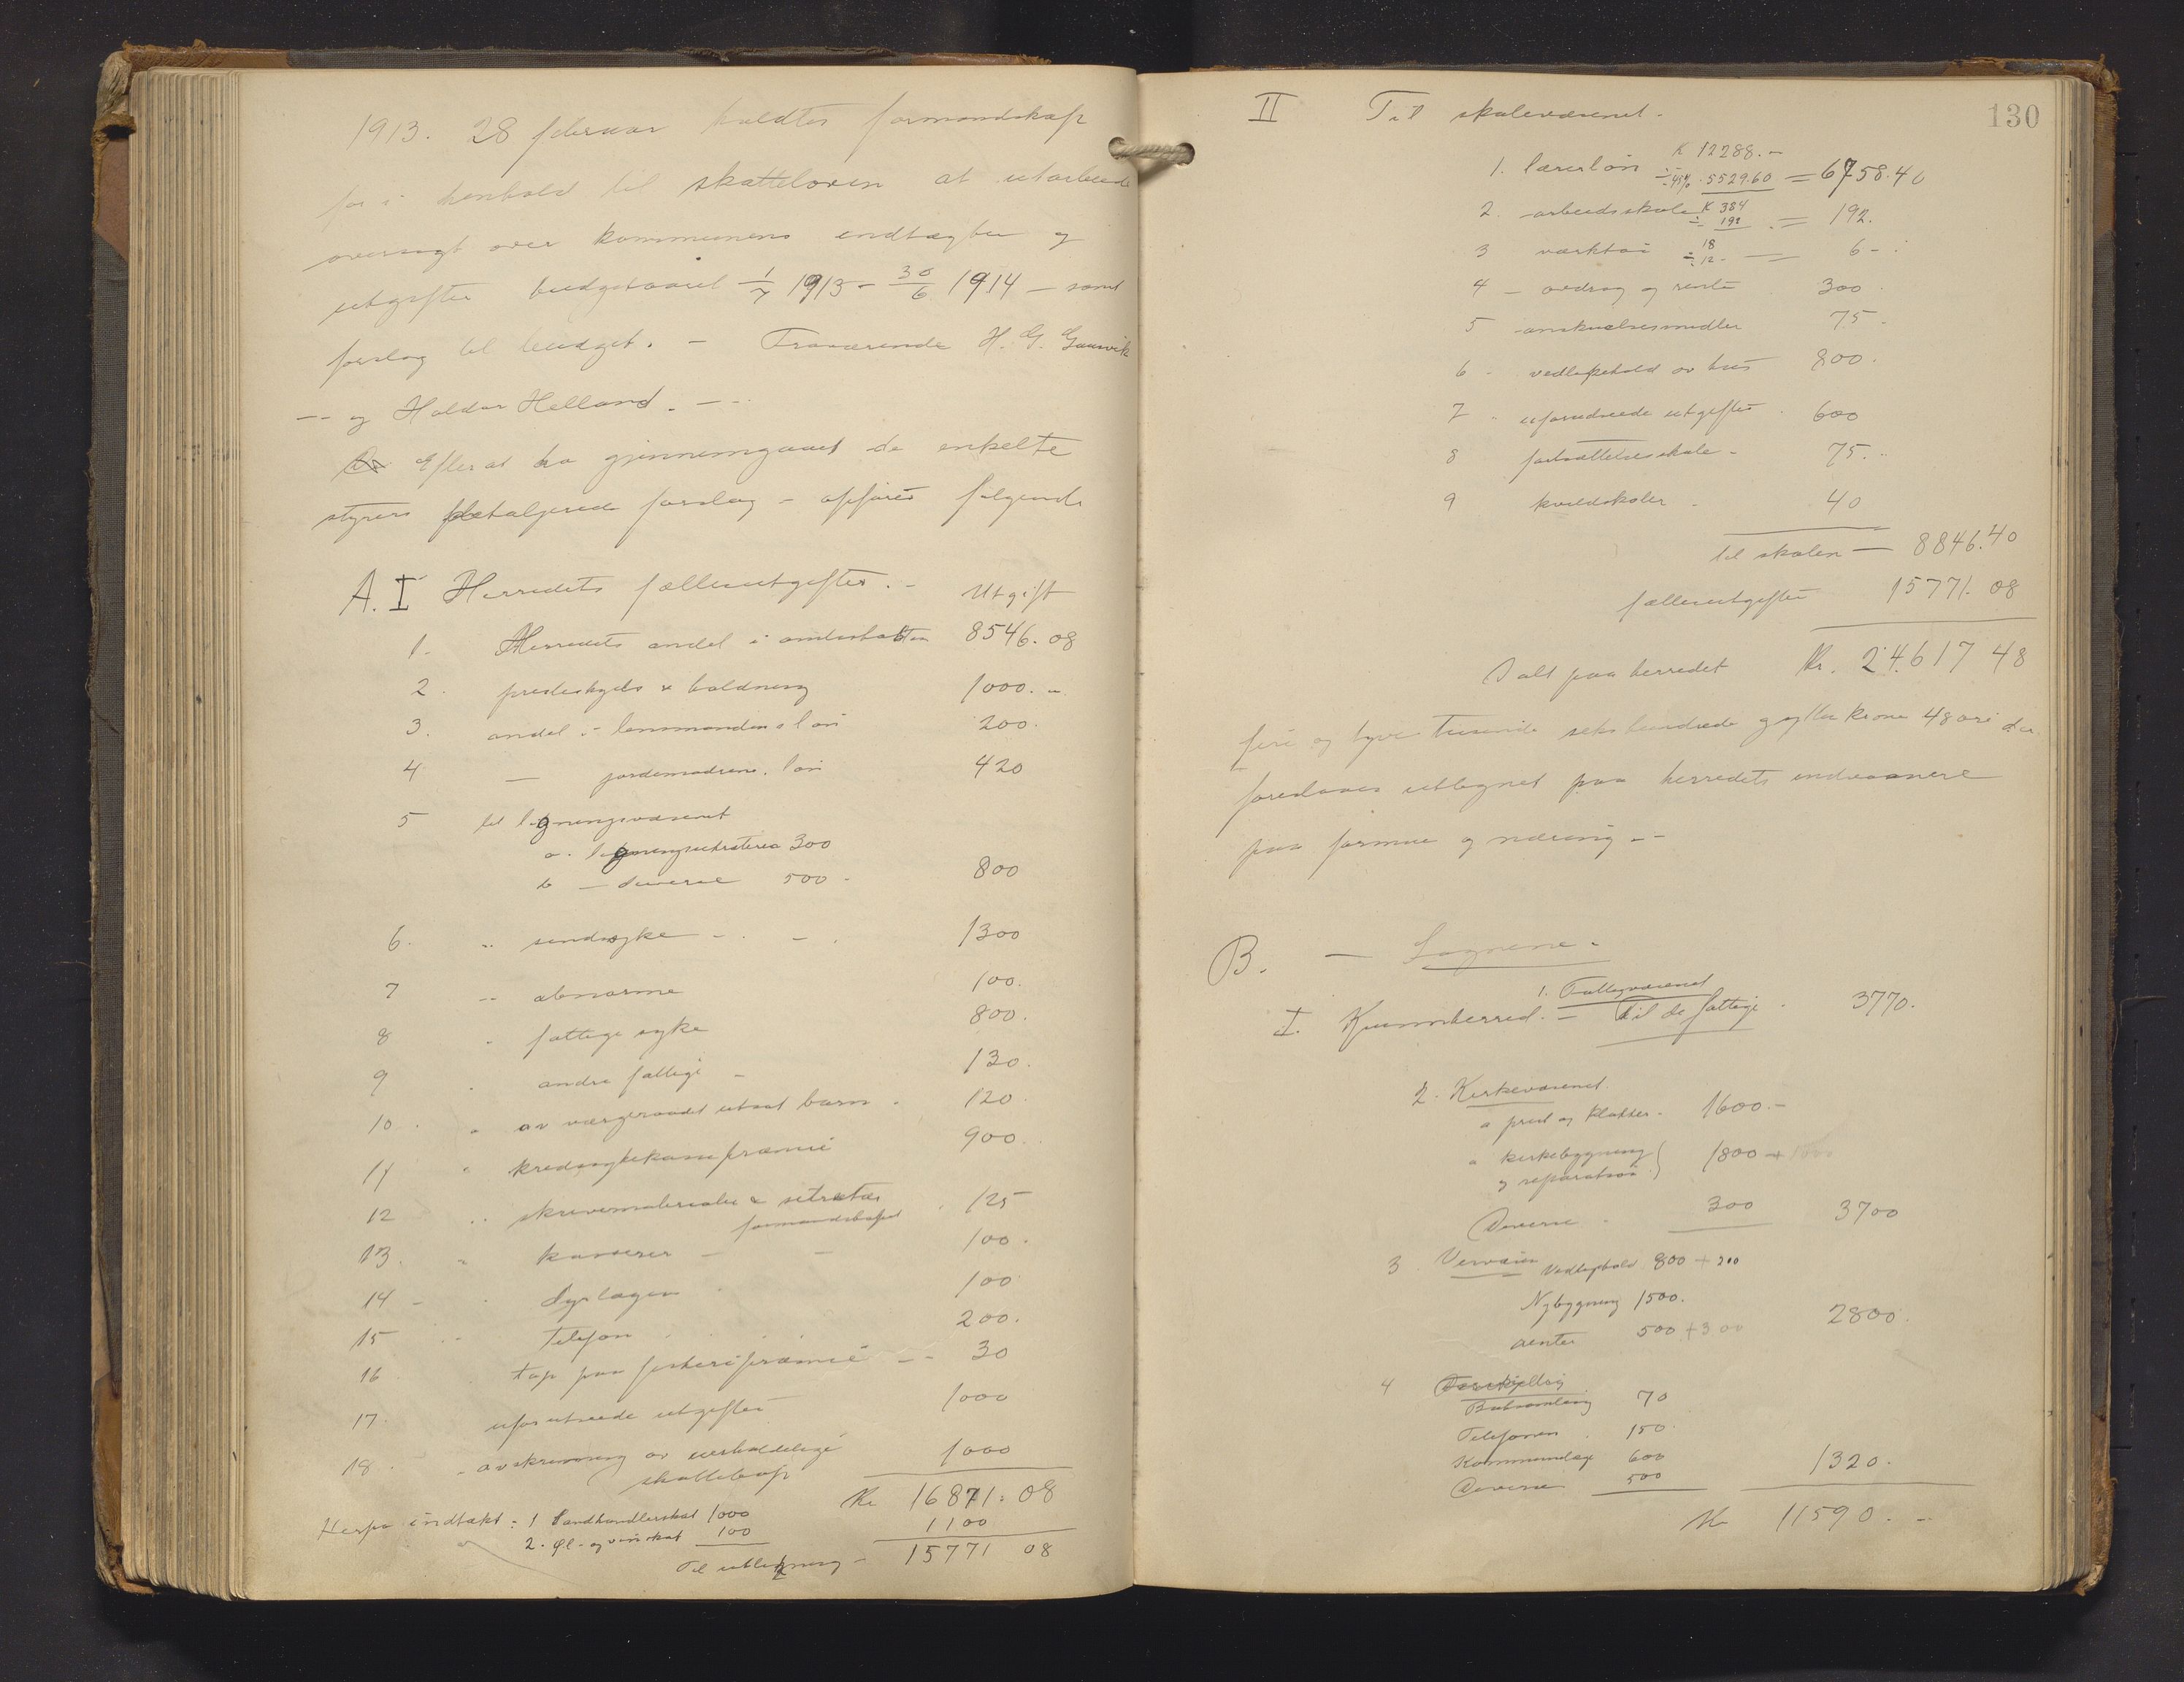 1913. 28 februar holdtes formandskap
for i henhold til skatteloven at utarbeide
oversigt over kommunens indtægter og
utgifter budgetaaret 1/7 1913 - 30/6 1914 - samt
forslag til budget. - Fraværende H. G. Gausvik
-- og Haldor Helland. --
Efterat ha gjennemgaaet de enkelte
styrers detaljerede forslag - opføres følgende
A. I Herredets fællesutgifter. - Utgift
1. Herredets andel i amtsskatten 8546.08
2. presteskyds & holdning 1000. -
3. andel i lensmandens løn 200.
4 — jordemødrens løn 420
5 til ligningsvæsenet
a. ligningssekretæren 300
b — diverse 500 - 800
6. " sindssyke - . - . 1300
7 " abnorme 100.
8 " fattige syke 800.
9 . andre fattige - 130.
10 . " av værgeraadet utsat barn . 120.
11 " kredssykekassepræmie 900.
12 " skrivematerialer & sekretær
formandskapet . 125
13. " kasserer - - 100.
14 - . dyrlægen . 100
15 " Telefon . . . . 200.
16 . tap paa fiskeripræmie -- 30
17. uforutseede utgifter 1000
18. - avskrivning av uerholdelige
skatteløp 1000
Kr 16871.08
Herpa indtækt: 1 Landhandlerskat 1000
2. Øl- og vinskat 100 1100
Til utligning - 15771 08
130
II Til skolevæsenet -
1. lærerløn K 12288.-
÷ 45% . 5529.60 = 6758.40
2. - arbeidsskole K 384
÷ 192 . = 192.
3 værktøi 18
÷ 12 - = 6 -
4 - avdrag og rente 300.
5 - anskuelsesmidler 75 -
6 - vedlikehold av hus 800.
7 " uforudseede utgifter . 600
8 fortsættelsesskole - 75. "
9 kveldskoler . 40
til skolen — 8846.40
fællesutgifter 15771.08
I alt paa herredet Kr. 24.617 48
fire og tyve tusinde seks hundrede og sytten krone 48 øre der
foreslaaes utlignet paa herredets indvaanere
paa formue og næring --
B. — Sognene.
1. Fattigvæsenet
I. Kvinnherred. - Til de fattige . 3770.
2. Kirkevæsenet
a prest og klokker. 1600.-
" kirkebygning
og reparation } 1800 + 1000
Diverse . 300 3700
3. Veivæsen Vedlikehold 800 + 200
Nybygning 1500.
renter 500 + 300 2800.
4 Forskjellig
Boksamling 70
Telefonen . 150.
Kommunelæge 600
Diverse 500 1320.
Kr 11590. -